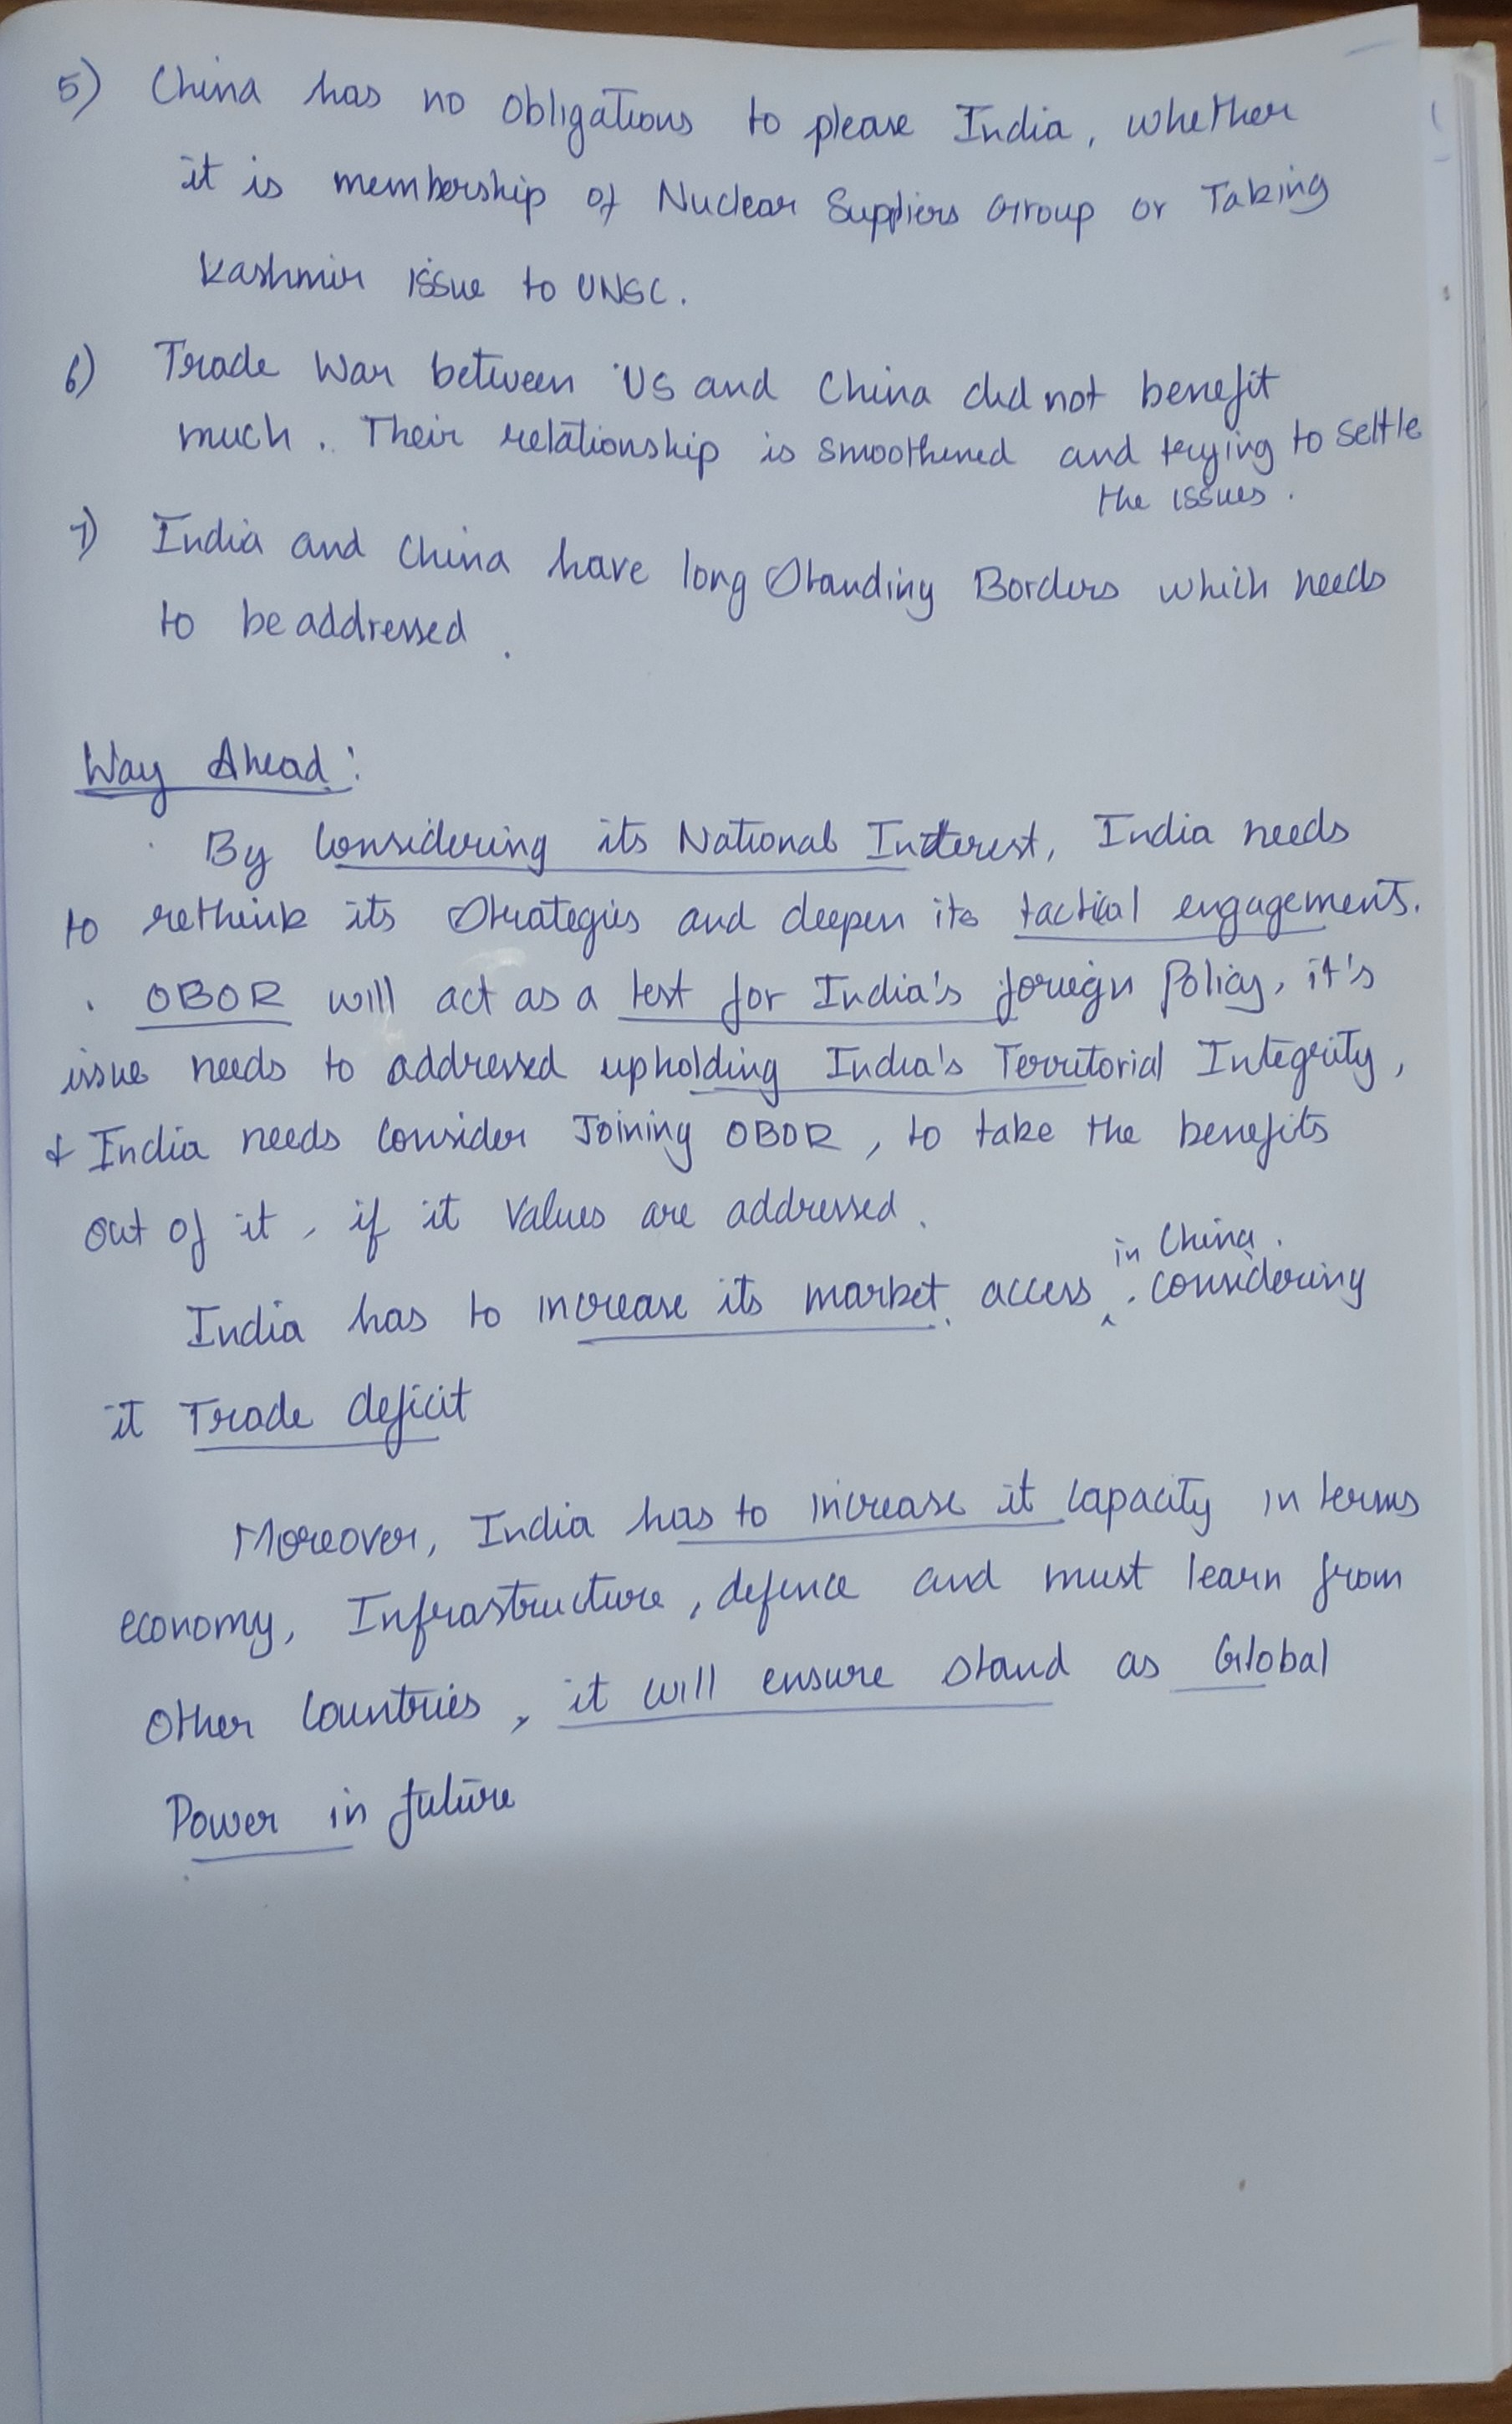 5) China has no obligations to please India, whether
it is membership of Nuclear Suppliers Group or Taking
Kashmir issue to UNSC.
6) Trade War between US and China did not benefit
much. Their relationship is smoothened and trying to settle
the issues.
7) India and China have long standing Borders which needs
to be addressed.
Way Ahead:
By Considering its National Interest, India needs
to rethink its strategies and deepen its tactical engagements.
OBOR will act as a test for India's foreign Policy, it's
issue needs to addressed upholding India's Territorial Integrity,
& India needs consider Joining OBOR, to take the benefits
out of it, if it values are addressed.
in China.
India has to increase its market access. Considering
it Trade deficit
Moreover, India has to increase it capacity in terms
economy, Infrastructure, defence and must learn from
other Countries, it will ensure stand as Global
Power in future